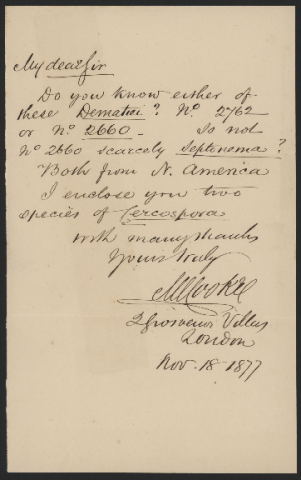 My dear Sir
Do you know either of
these Dematiei? No. 2762
or No. 2660 - Is not
No 2660 scarcely Septonema?
Both from N. America
I enclose you two
species of Cercospora
with many thanks
Yours truly
M C Cooke
2 Grosvenor Villas
London
Nov. 18 1877